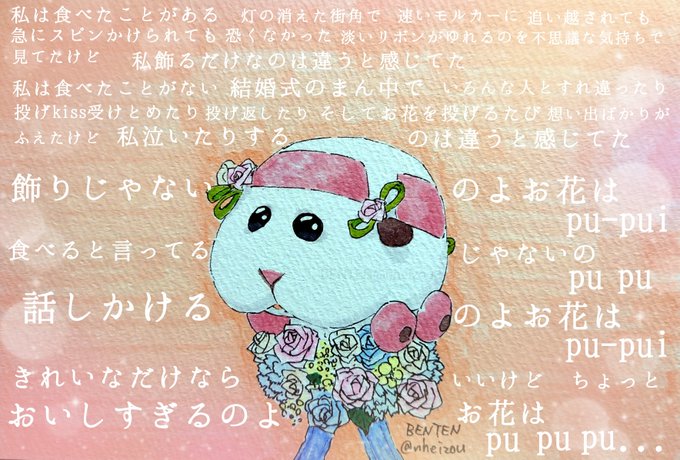 私は食べたことがある 灯の消えた街角で 速いモルカーに 追い越されても
急にスピンかけられても 恐くなかった 淡いリボンがゆれるのを不思議な気持ちで
見てたけど 私飾るだけなのは違うと感じてた
私は食べたことがない 結婚式のまん中で いろんな人とすれ違ったり
投げkiss受けとめたり 投げ返したり そしてお花を投げるたび 想い出ばかりが
ふえたけど 私泣いたりする のは違うと感じてた
飾りじゃない のよお花は
pu-pui
食べると言ってる じゃないの
pu pu
話しかける のよお花は
pu-pui
きれいなだけなら いいけど ちょっと
おいしすぎるのよ お花は
pu pu pu...
BENTEN
@nheizou